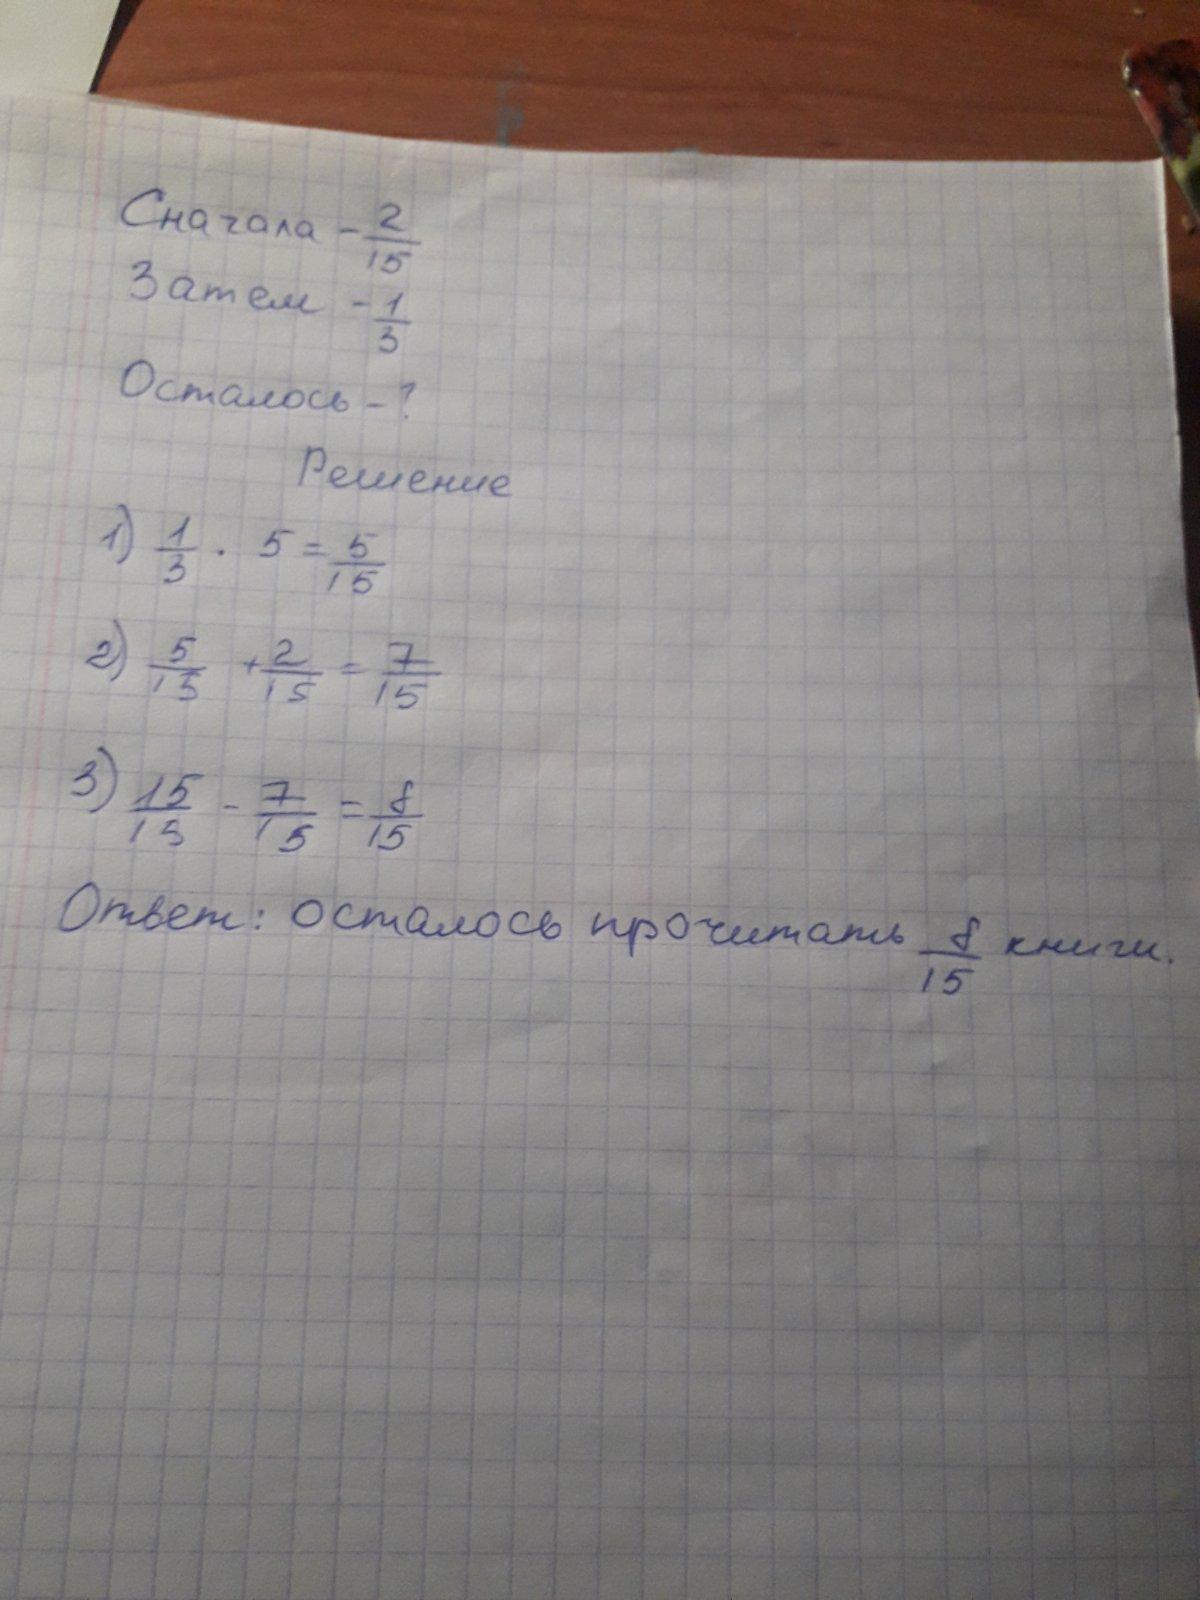 Сначала - 2/15
Затем - 1/3
Осталось - ?
Решение
1) 1/3 · 5 = 5/15
2) 5/15 + 2/15 = 7/15
3) 15/15 - 7/15 = 8/15
Ответ: осталось прочитать 8/15 книги.